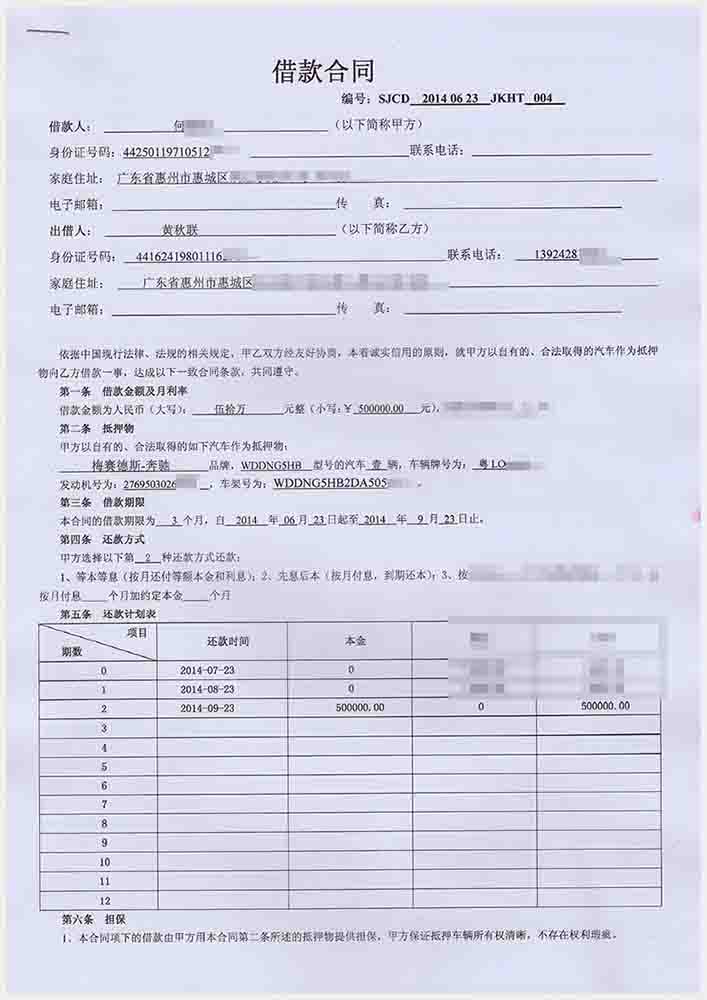 借款合同
编号：SJCD 2014 06 23 JKHT 004
借款人： 何 （以下简称甲方）
身份证号码：44250119710512 联系电话：
家庭住址： 广东省惠州市惠城区
电子邮箱： 传 真：
出借人： 黄秋联 （以下简称乙方）
身份证号码： 44162419801116 联系电话： 1392428
家庭住址： 广东省惠州市惠城区
电子邮箱： 传 真：
依据中国现行法律、法规的相关规定，甲乙双方经友好协商，本着诚实信用的原则，就甲方以自有的、合法取得的汽车作为抵押
物向乙方借款一事，达成以下一致合同条款，共同遵守。
第一条 借款金额及月利率
借款金额为人民币（大写）： 伍拾万 元整（小写：￥ 500000.00 元），
第二条 抵押物
甲方以自有的、合法取得的如下汽车作为抵押物：
梅赛德斯-奔驰 品牌，WDDNG5HB 型号的汽车 壹 辆，车辆牌号为： 粤LO
发动机号为：2769503026 ，车架号为：WDDNG5HB2DA505 。
第三条 借款期限
本合同的借款期限为 3 个月，自 2014 年 06 月 23 日起至 2014 年 9 月 23 日止。
第四条 还款方式
甲方选择以下第 2 种还款方式还款：
1、等本等息（按月还付等额本金和利息）；2、先息后本（按月付息，到期还本）；3、按
按月付息 个月加约定本金 个月
第五条 还款计划表
项目 还款时间 本金
期数
0 2014-07-23 0
1 2014-08-23 0
2 2014-09-23 500000.00 0 500000.00
3
4
5
6
7
8
9
10
11
12
第六条 担保
1、本合同项下的借款由甲方用本合同第二条所述的抵押物提供担保，甲方保证抵押车辆所有权清晰，不存在权利瑕疵。